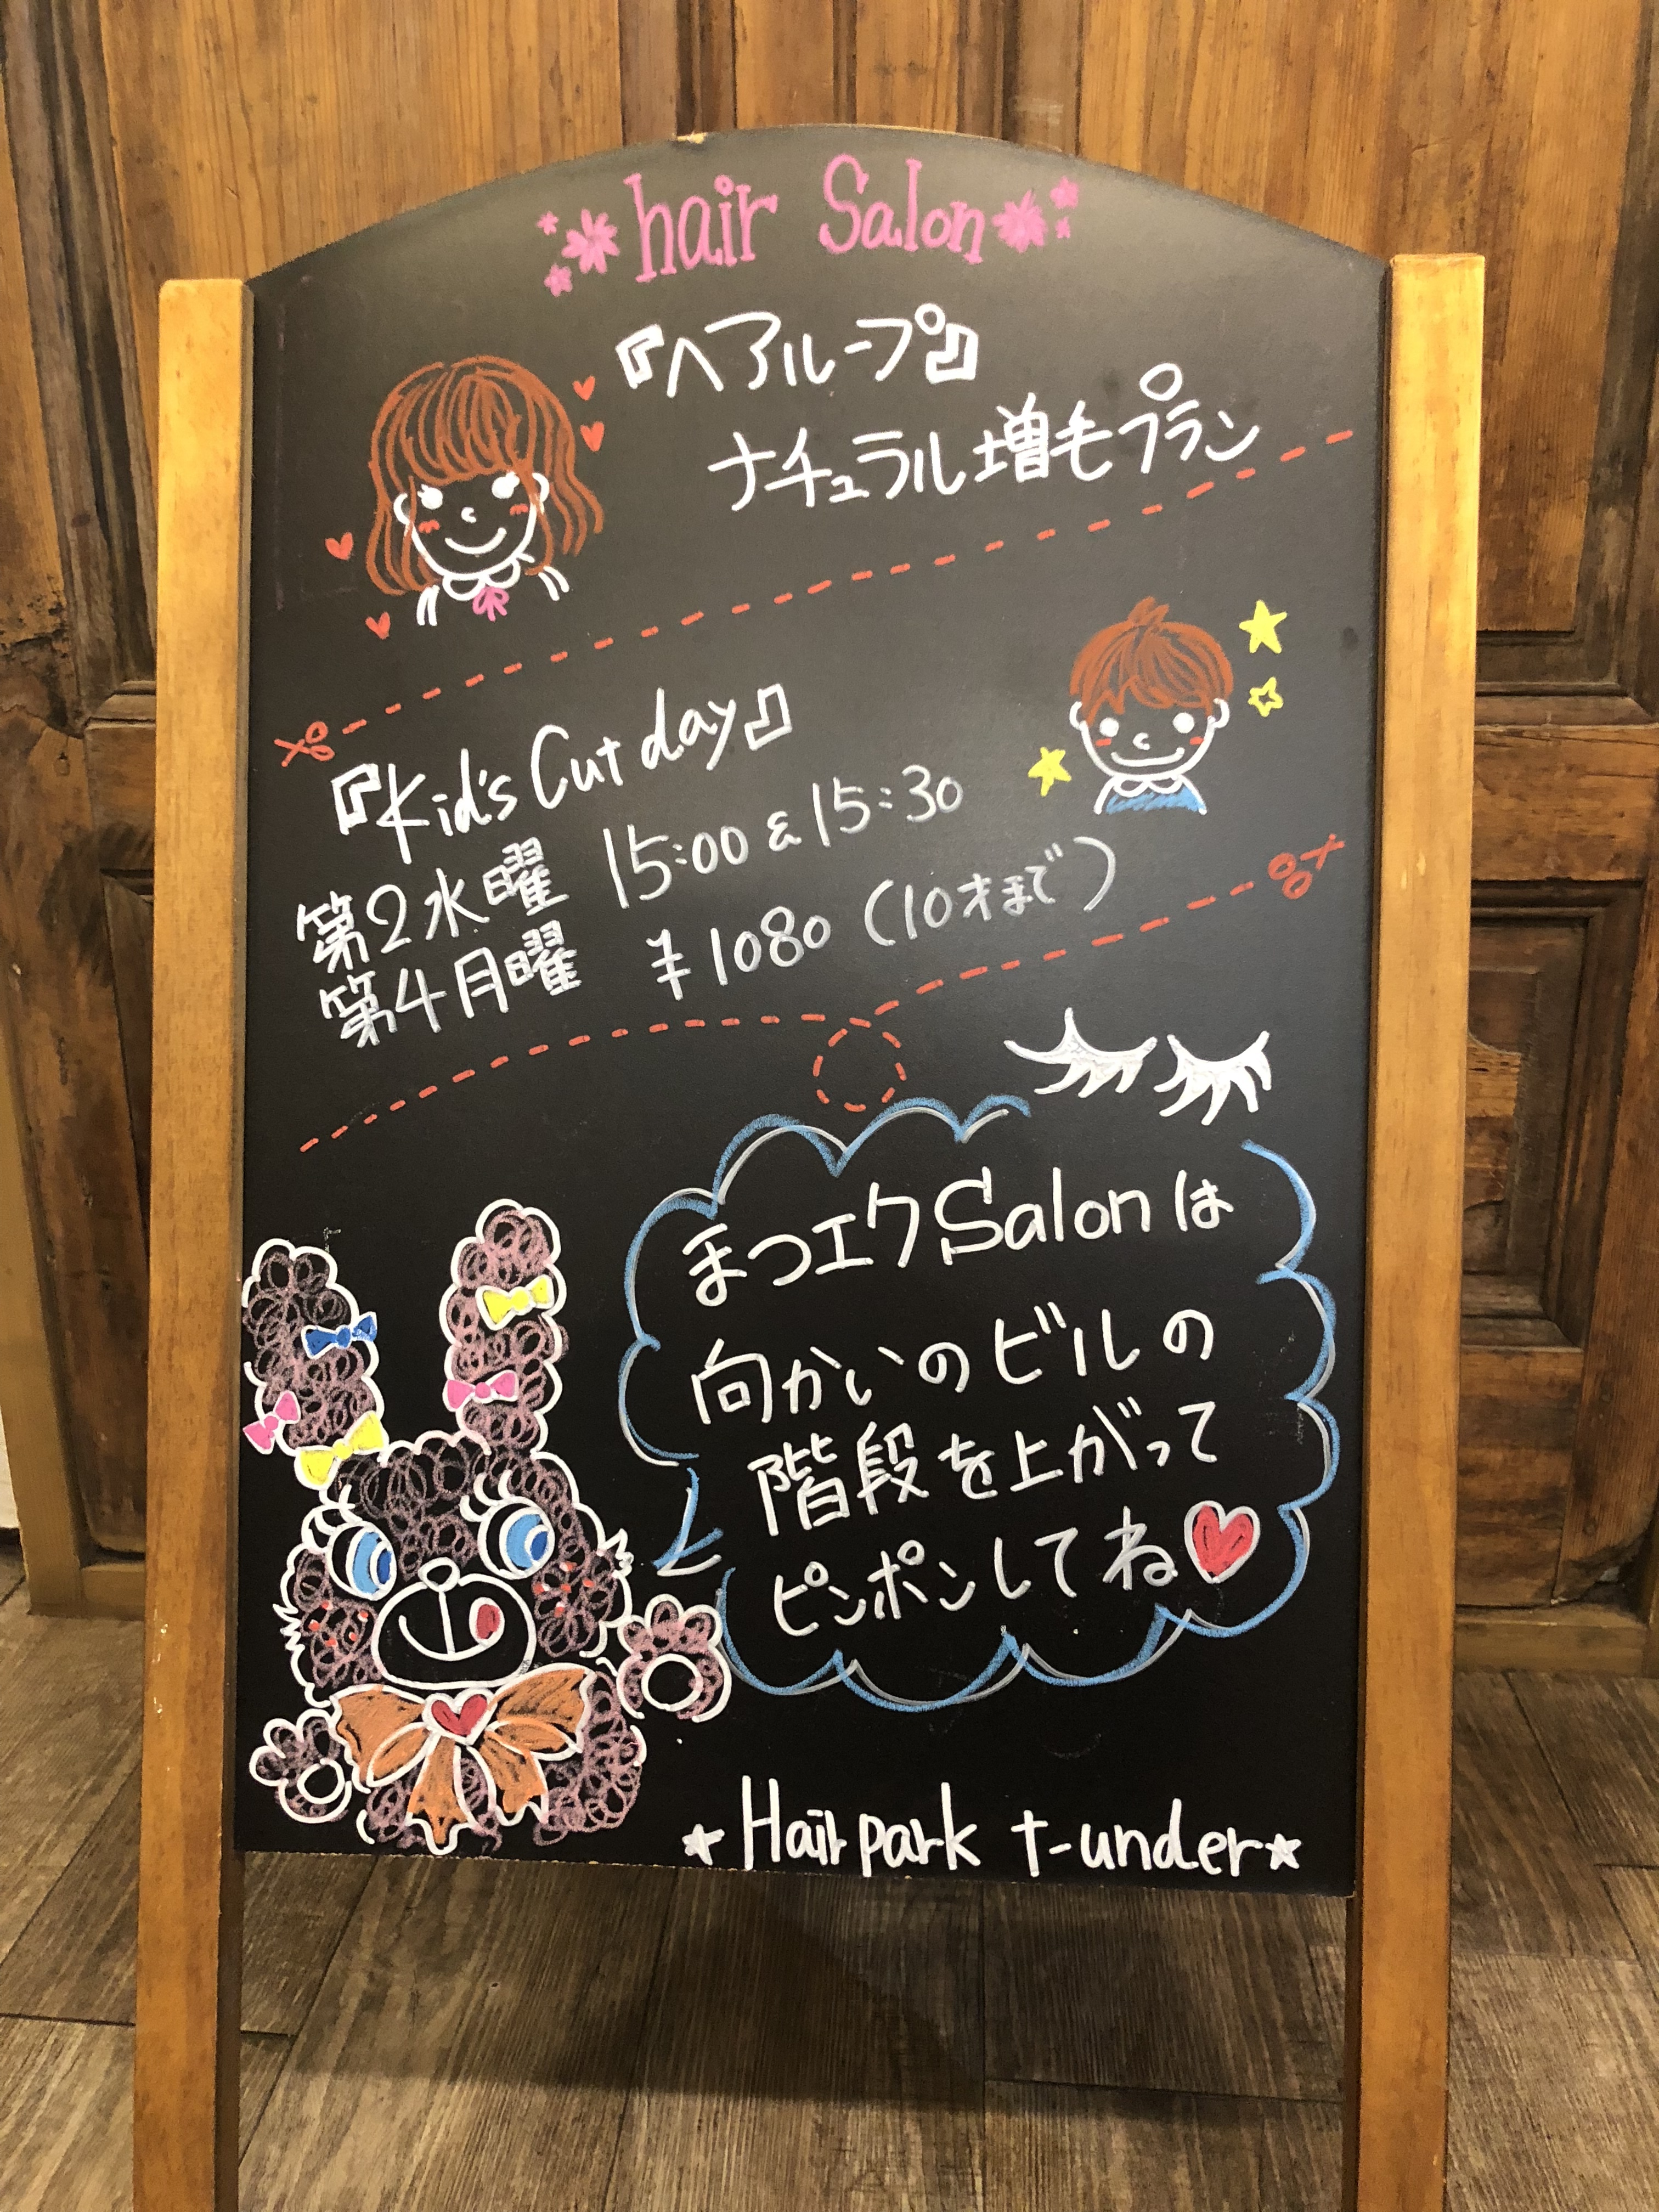 hair Salon
『ヘアループ』
ナチュラル増毛プラン
『Kid's Cut day』
第2水曜 15:00 & 15:30
第4月曜 ¥1080 (10才まで)
まつエクSalonは
向かいのビルの
階段を上がって
ピンポンしてね
Hair park t-under